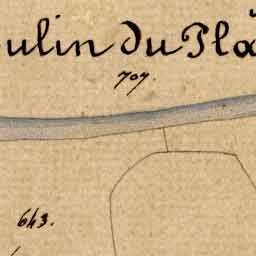 oulin du Pla
707.
643.